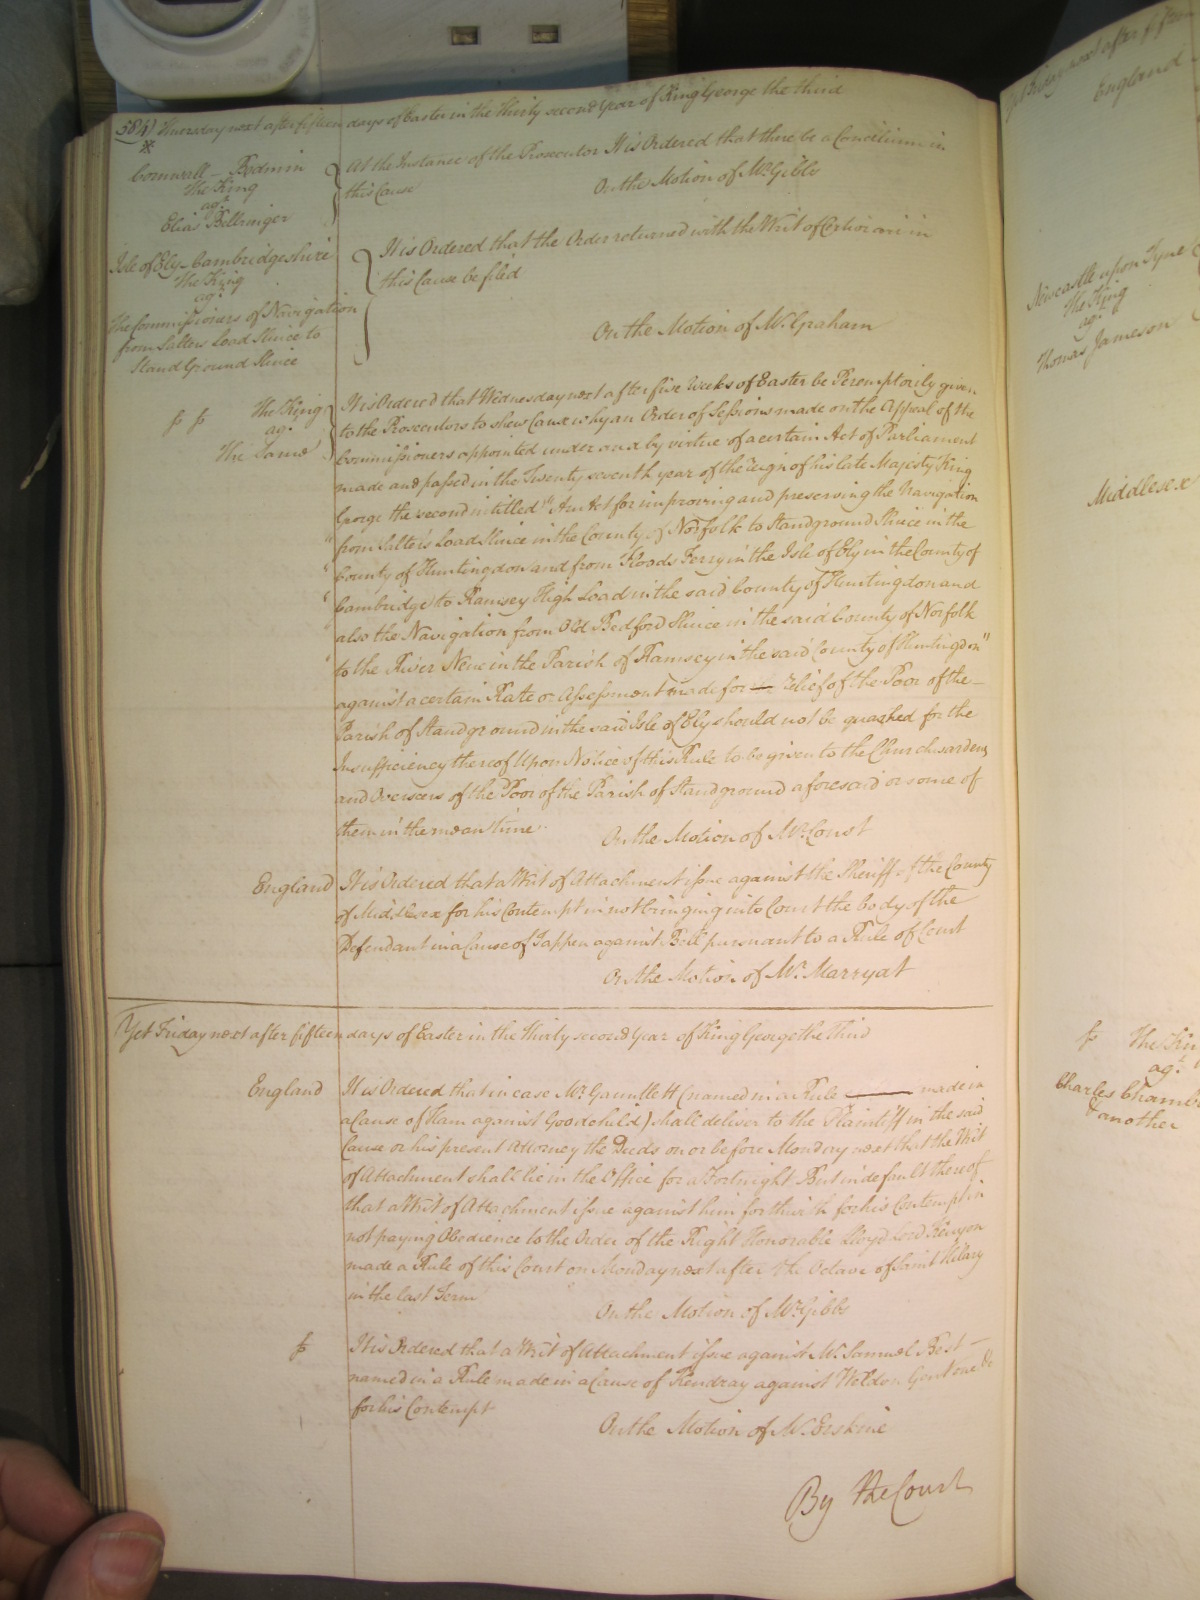 584) Thursday next after fifteen days of Easter in the Thirty second Year of King George the third
Cornwall – Bodmin
The King
agt
Elias Bellringer
At the Instance of the Prosecutor It is Ordered that there be a Concilium in
this Cause
On the Motion of Mr. Gibbs
Isle of Ely Cambridgeshire
The King
agt
The Commissioners of Navigation
from Salters Load Sluice to
Stand Ground Sluice
It is Ordered that the Order returned with the Writ of Certiorari in
this Cause be filed
On the Motion of Mr. Graham
The King
agt
The Same
It is Ordered that Wednesday next after five Weeks of Easter be Peremptorily given
to the Prosecutors to shew Cause why an Order of Sessions made on the Appeal of the
Commissioners appointed under and by virtue of a certain Act of Parliament
made and passed in the Twenty seventh year of the reign of his late Majesty King
George the second intitled "An Act for improving and preserving the Navigation
" from Salters Load Sluice in the County of Norfolk to Standground Sluice in the
" County of Huntingdon and from Floods Ferry in the Isle of Ely in the County of
" Cambridge to Ramsey High Load in the said County of Huntingdon and
" also the Navigation from Old Bedford Sluice in the said County of Norfolk
" to the River Nene in the Parish of Ramsey in the said County of Huntingdon"
against a certain Rate or Assessment made for relief of the Poor of the
Parish of Standground in the said Isle of Ely should not be quashed for the
Insufficiency thereof Upon Notice of this Rule to be given to the Churchwardens
and Overseers of the Poor of the Parish of Standground aforesaid or some of
them in the mean time
On the Motion of Mr. Const
England
It is Ordered that a Writ of Attachment issue against the Sheriff of the County
of Middlesex for his Contempt in not bringing into Court the body of the
Defendant in a Cause of Tappen against Bell pursuant to a Rule of Court
On the Motion of Mr. Marryat
Yet Friday next after fifteen days of Easter in the Thirty second Year of King George the Third
England
It is Ordered that in case Mr. Gauntlett (named in a Rule made in
a Cause of Ham against Goodchild) shall deliver to the Plaintiff in the said
Cause or his present Attorney the Deeds on or before Monday next that the Writ
of Attachment shall lie in the Office for a Fortnight But in default thereof
that a Writ of Attachment issue against him forthwith for his Contempt in
not paying Obedience to the Order of the Right Honorable Lloyd Lord Kenyon
made a Rule of this Court on Monday next after the Octave of Saint Hilary
in the last Term
On the Motion of Mr. Gibbs
It is Ordered that a Writ of Attachment issue against Mr. Samuel Best
named in a Rule made in a Cause of Kendray against Weldon Gent one &c
for his Contempt
On the Motion of Mr. Erskine
By the Court
England
Newcastle upon Tyne
The King
agt
Thomas Jameson
Middlesex
The Kin
agt
Charles Chamb
& another